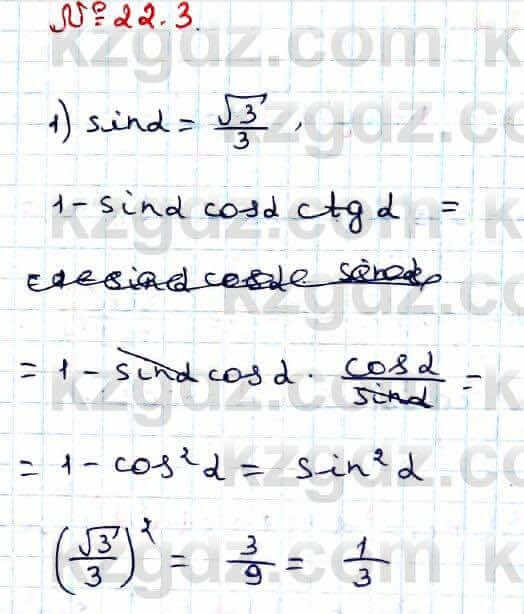 № 22.3.
1) sin α = √3/3,
1 - sin α cos α ctg α =
= 1 - sin α cos α · cos α/sin α =
= 1 - cos² α = sin² α
(√3/3)² = 3/9 = 1/3
kzgdz.com